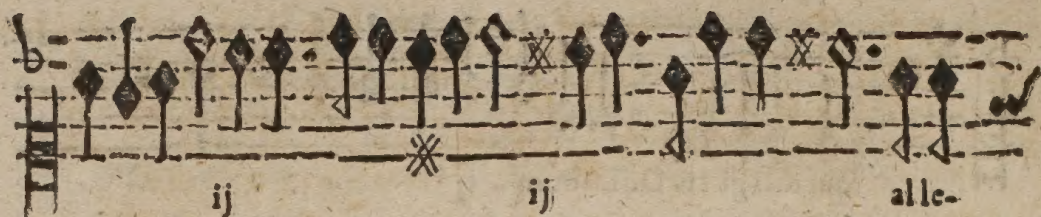 ij ij alle-